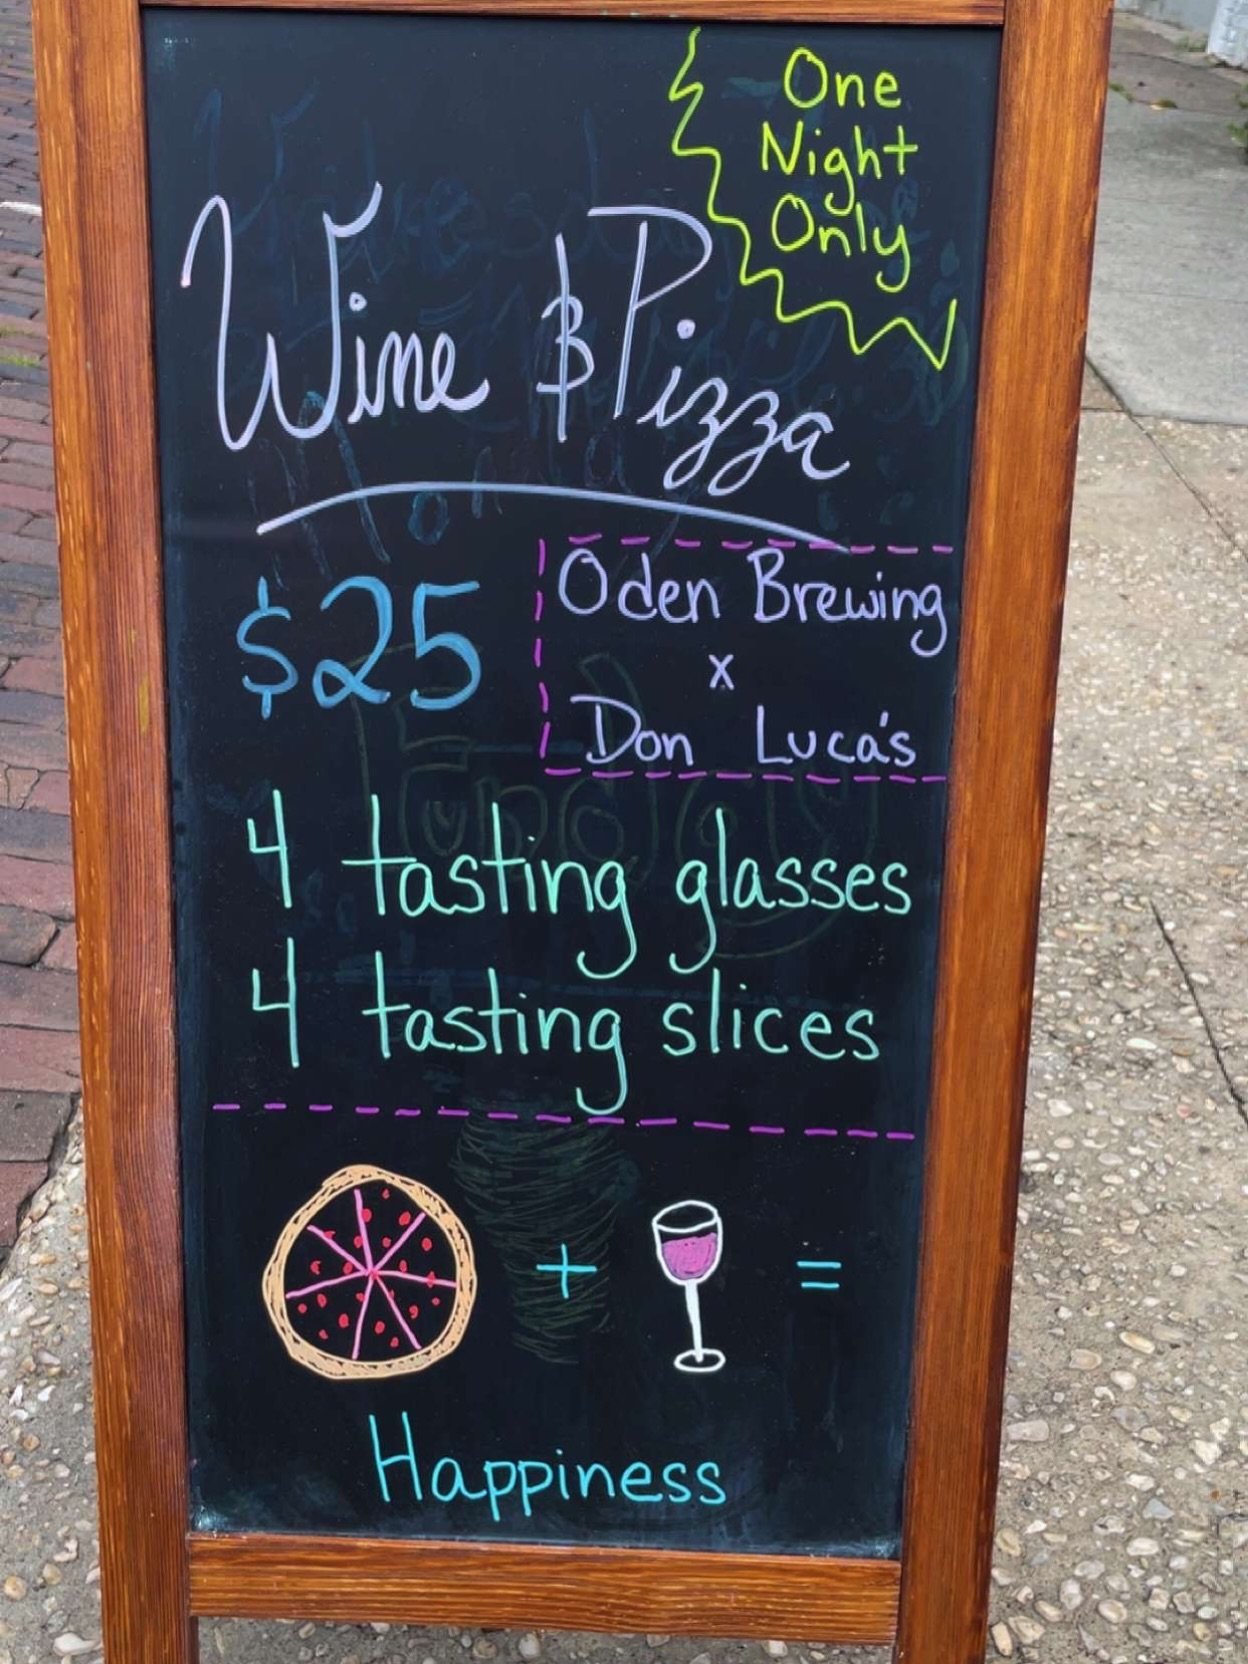 One
Night
Only
Wine & Pizza
$25
Oden Brewing
x
Don Luca's
4 tasting glasses
4 tasting slices
+ =
Happiness